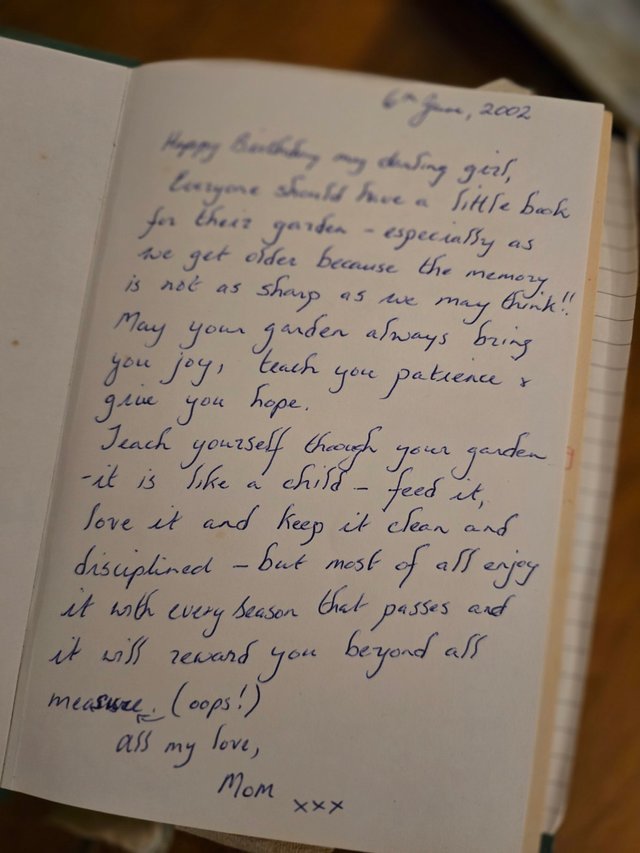 6th June, 2002
Happy Birthday my darling girl,
Everyone should have a little book
for their garden – especially as
we get older because the memory
is not as sharp as we may think!!
May your garden always bring
you joy, teach you patience &
give you hope.
Teach yourself though your garden
-it is like a child – feed it,
love it and keep it clean and
disciplined – but most of all enjoy
it with every season that passes and
it will reward you beyond all
measure. (oops!)
all my love,
Mom xxx